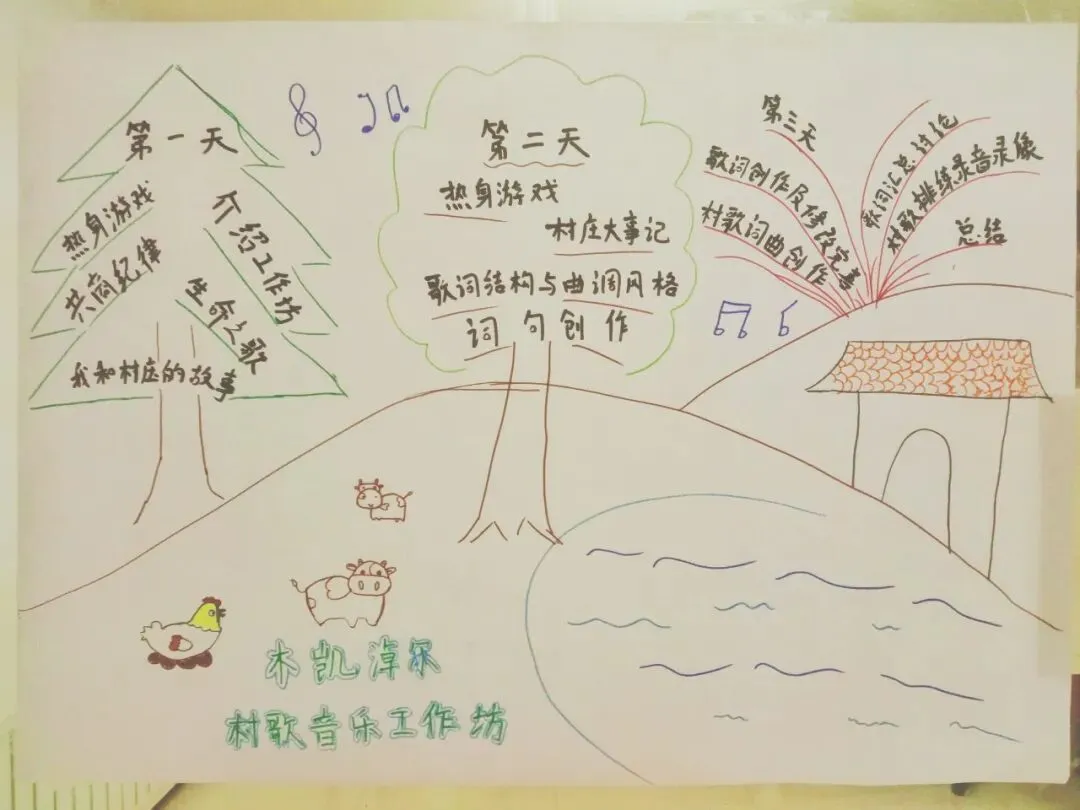 第一天
热身游戏
介绍工作坊
共商纪律
生命之歌
我和村庄的故事
第二天
热身游戏
村庄大事记
歌词结构与曲调风格
词句创作
第三天
歌词创作及修改完善
村歌词曲创作
歌词汇总讨论
村歌排练录音录像
总结
木凯淖尔
村歌音乐工作坊